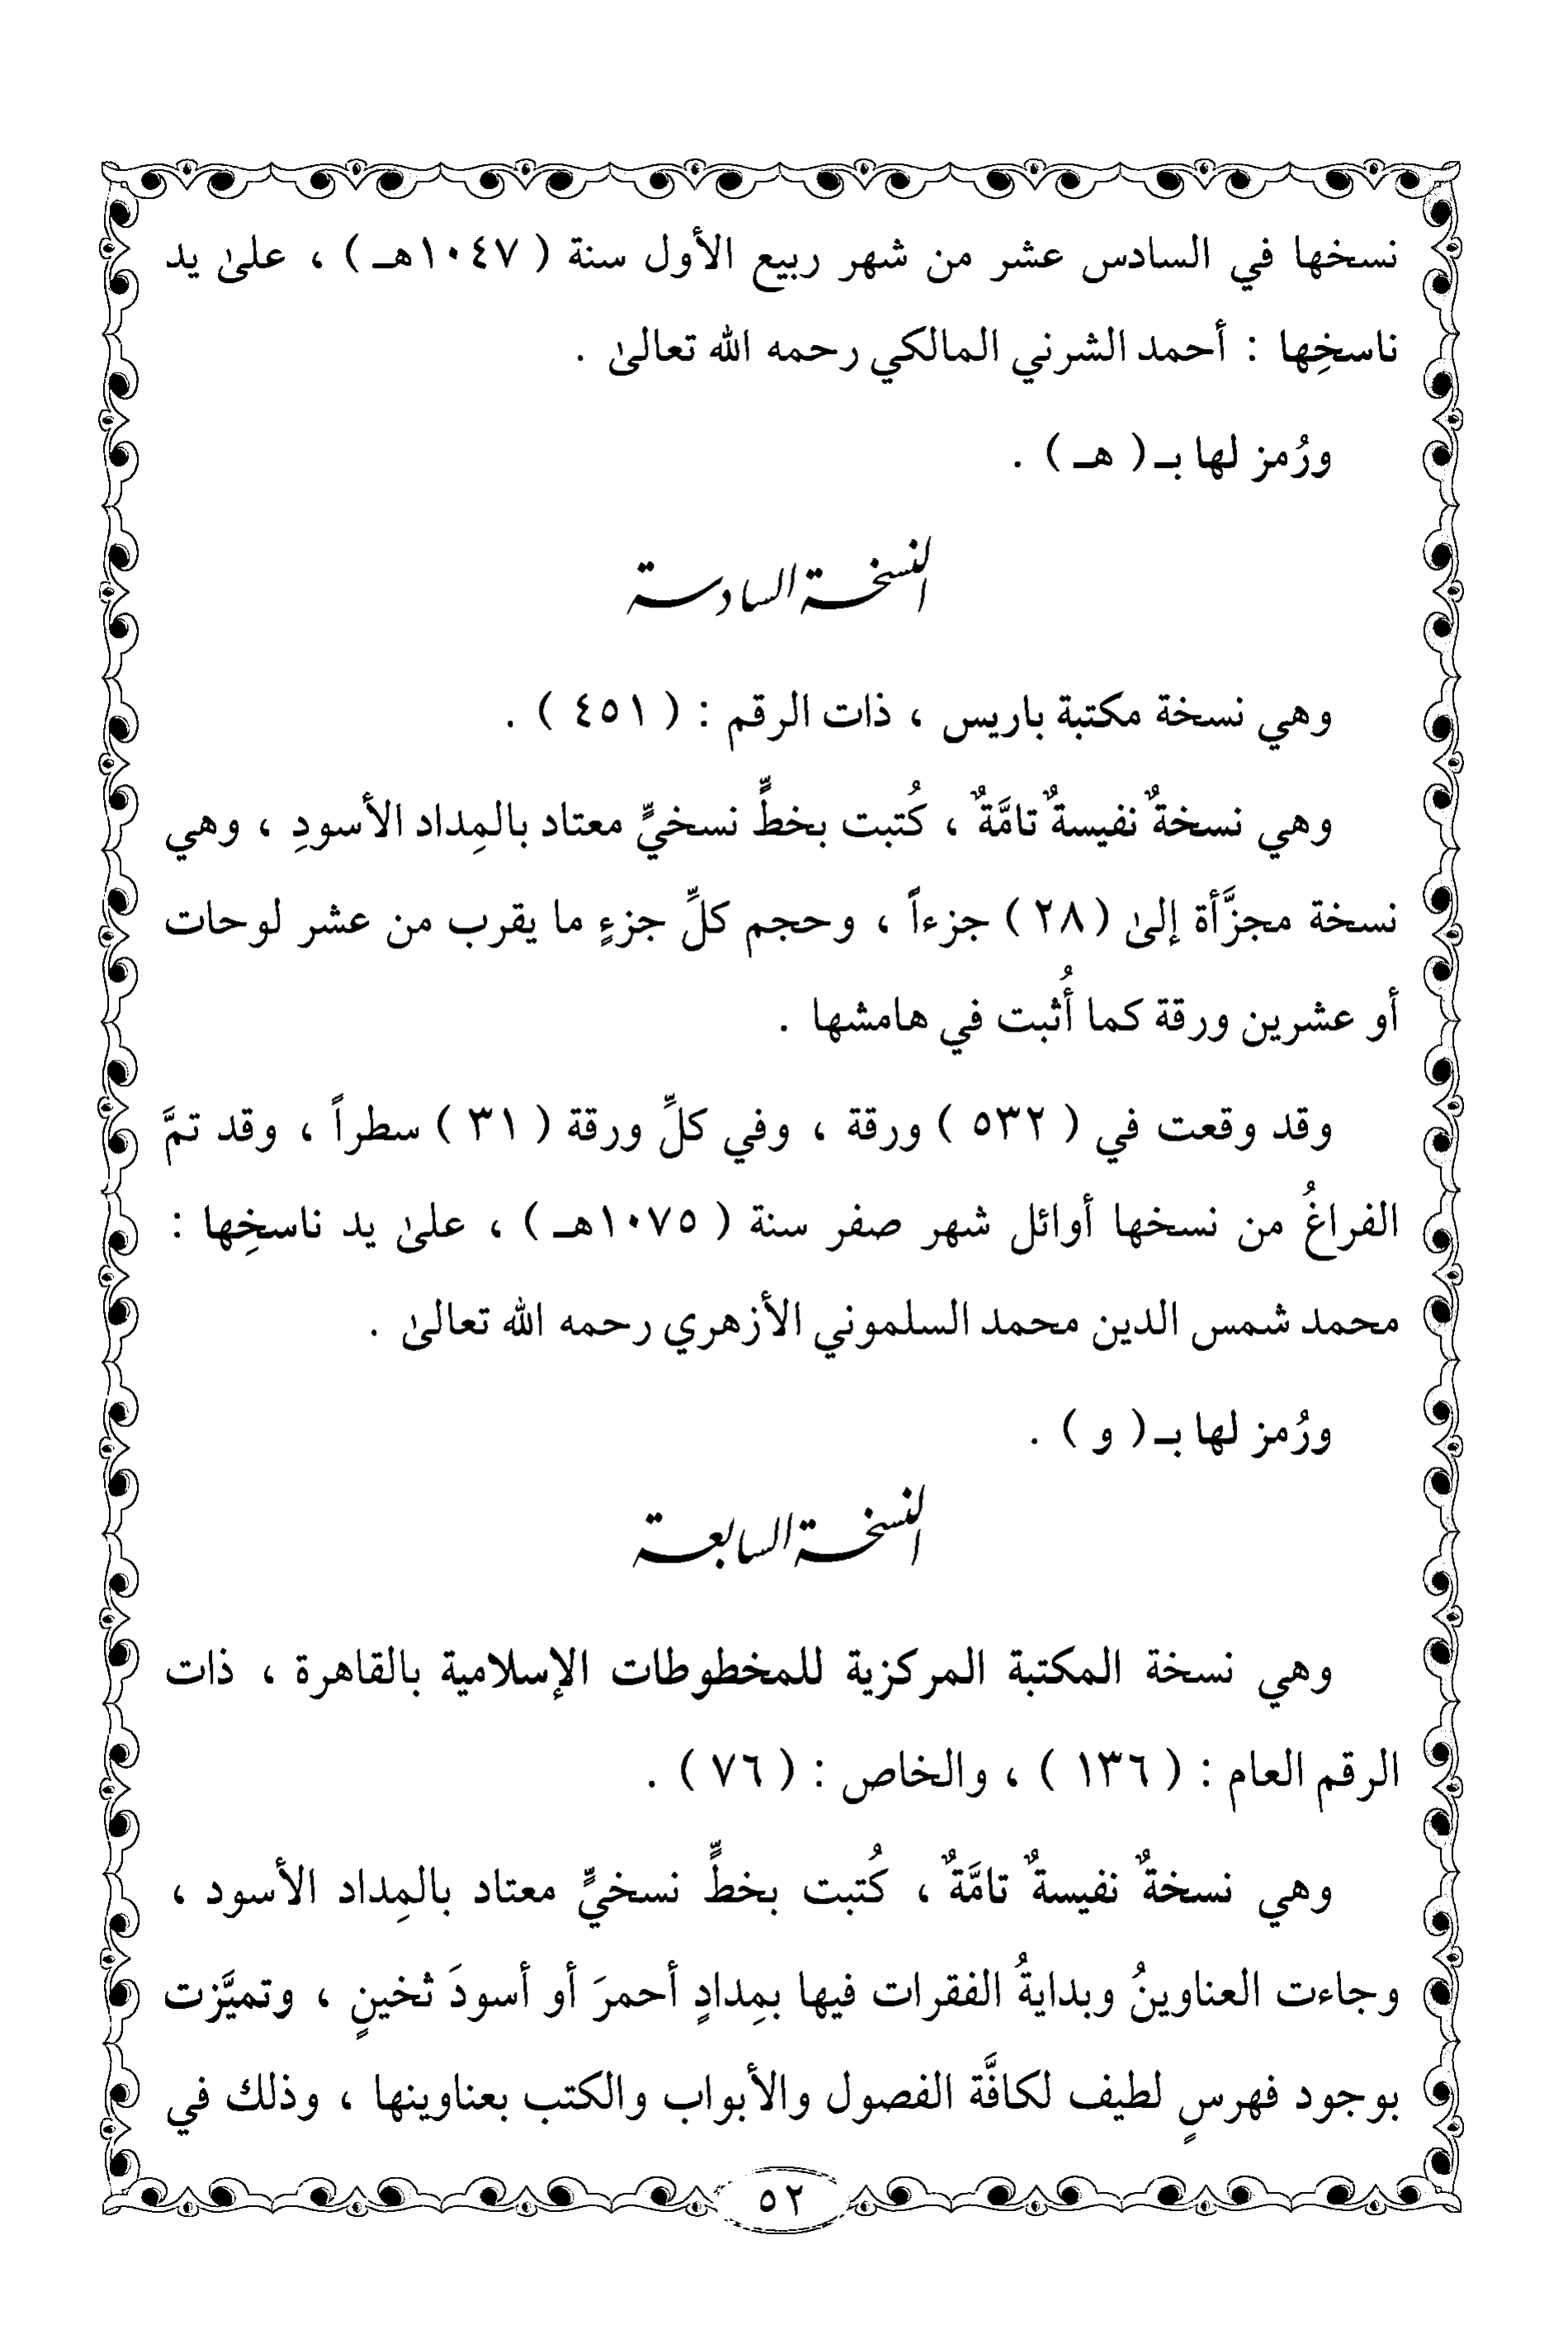 نسخها في السادس عشر من شهر ربيع الأول سنة ( ١٠٤٧هـ ) ، علىٰ يد
ناسخِها : أحمد الشرني المالكي رحمه الله تعالىٰ .
ورُمز لها بـ( هـ ) .
النسخة السادسة
وهي نسخة مكتبة باريس ، ذات الرقم : ( ٤٥١ ) .
وهي نسخةٌ نفيسةٌ تامَّةٌ ، كُتبت بخطٍّ نسخيٍّ معتاد بالمِداد الأسودِ ، وهي
نسخة مجزَّأة إلىٰ ( ٢٨ ) جزءاً ، وحجم كلِّ جزءٍ ما يقرب من عشر لوحات
أو عشرين ورقة كما أُثبت في هامشها .
وقد وقعت في ( ٥٣٢ ) ورقة ، وفي كلِّ ورقة ( ٣١ ) سطراً ، وقد تمَّ
الفراغُ من نسخها أوائل شهر صفر سنة ( ١٠٧٥هـ ) ، علىٰ يد ناسخِها :
محمد شمس الدين محمد السلموني الأزهري رحمه الله تعالىٰ .
ورُمز لها بـ( و ) .
النسخة السابعة
وهي نسخة المكتبة المركزية للمخطوطات الإسلامية بالقاهرة ، ذات
الرقم العام : ( ١٣٦ ) ، والخاص : ( ٧٦ ) .
وهي نسخةٌ نفيسةٌ تامَّةٌ ، كُتبت بخطٍّ نسخيٍّ معتاد بالمِداد الأسود ،
وجاءت العناوينُ وبدايةُ الفقرات فيها بمِدادٍ أحمرَ أو أسودَ ثخينٍ ، وتميَّزت
بوجود فهرسٍ لطيف لكافَّة الفصول والأبواب والكتب بعناوينها ، وذلك في
٥٢